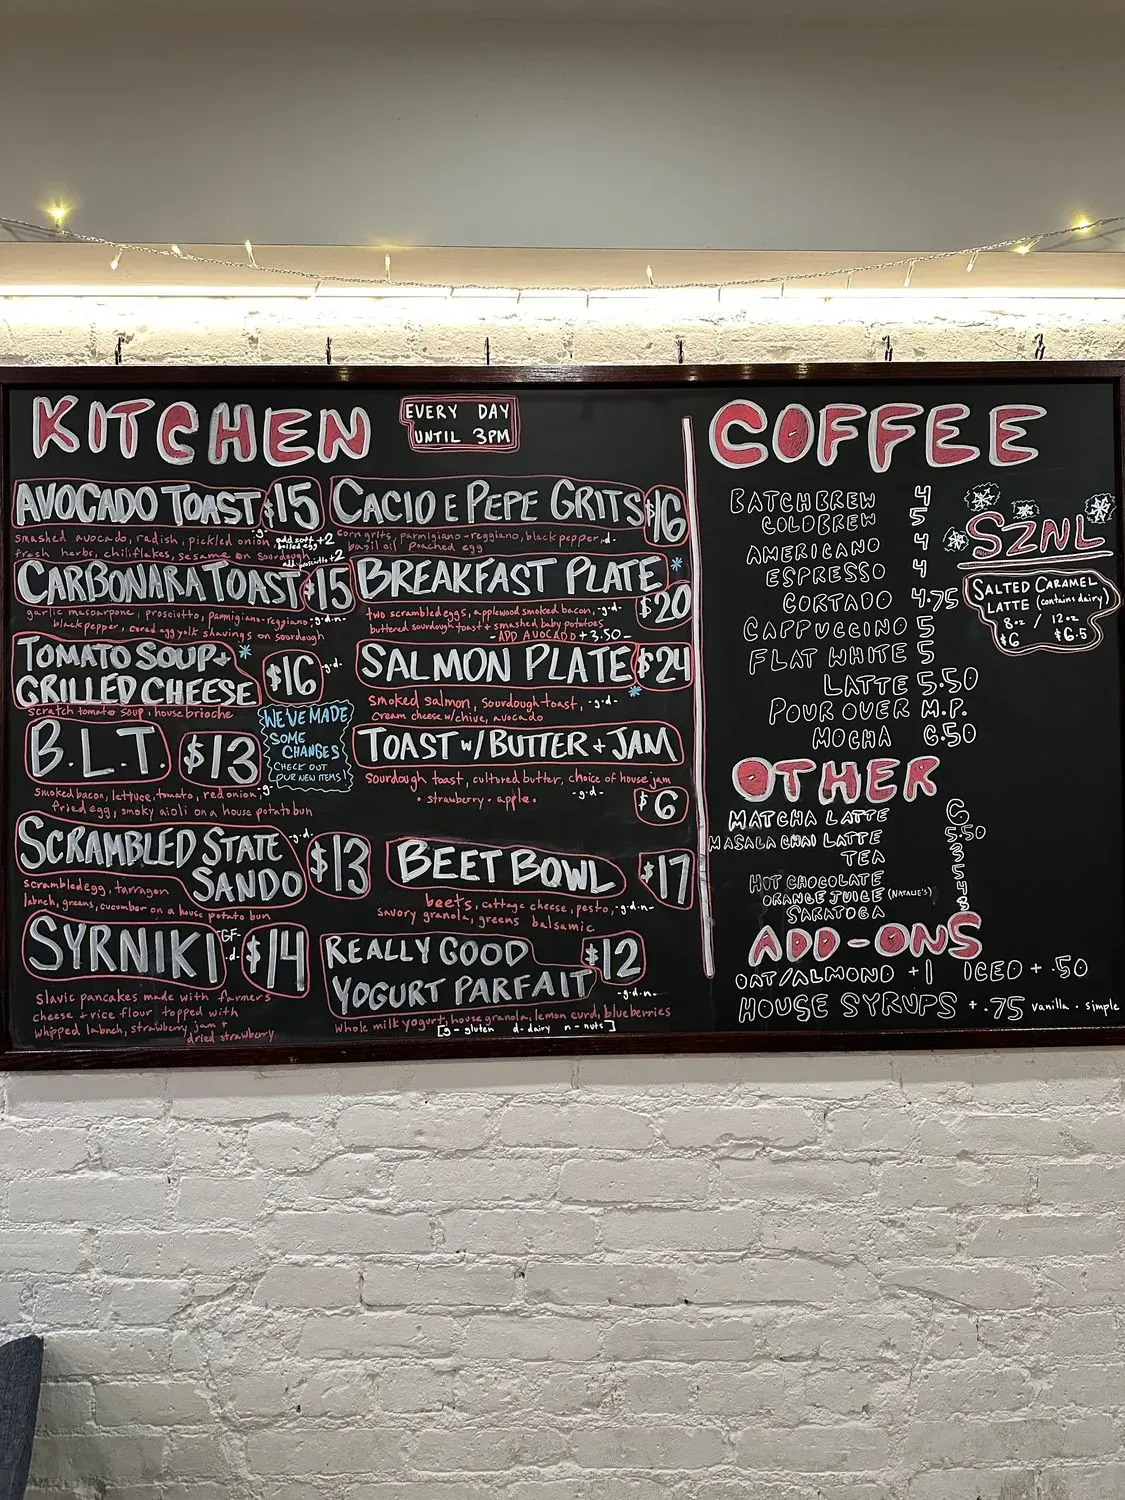 KITCHEN
EVERY DAY
UNTIL 3PM
AVOCADO TOAST $15
smashed avocado, radish, pickled onion -g-
fresh herbs, chili flakes, sesame on sourdough
add soft boiled egg +2
add prosciutto +2
CARBONARA TOAST $15
garlic mascarpone, prosciutto, parmigiano-reggiano, -g.d.n-
black pepper, cured egg yolk shavings on sourdough
TOMATO SOUP + *
GRILLED CHEESE $16 -g.d-
scratch tomato soup, house brioche
B.L.T. $13
smoked bacon, lettuce, tomato, red onion, -g-
fried egg, smoky aioli on a house potato bun
WE'VE MADE
SOME
CHANGES
CHECK OUT
OUR NEW ITEMS!
SCRAMBLED STATE -g.d-
SANDO $13
scrambled egg, tarragon
labneh, greens, cucumber on a house potato bun
SYRNIKI -GF- -d- $14
slavic pancakes made with farmers
cheese + rice flour topped with
whipped labneh, strawberry jam +
dried strawberry
CACIO E PEPE GRITS $16
corn grits, parmigiano-reggiano, black pepper, -d-
basil oil poached egg
BREAKFAST PLATE *
$20
two scrambled eggs, applewood smoked bacon, -g.d-
buttered sourdough toast + smashed baby potatoes
- ADD AVOCADO +3.50 -
SALMON PLATE $24
*
smoked salmon, sourdough toast, -g.d-
cream cheese w/chive, avocado
TOAST w/ BUTTER + JAM
sourdough toast, cultured butter, choice of house jam
• strawberry • apple • -g.d-
$6
BEET BOWL $17
beets, cottage cheese, pesto, -g.d.n-
savory granola, greens balsamic
REALLY GOOD
YOGURT PARFAIT $12
-g.d.n-
whole milk yogurt, house granola, lemon curd, blueberries
[g - gluten d - dairy n - nuts]
COFFEE
BATCHBREW 4
COLDBREW 5
AMERICANO 4
ESPRESSO 4
CORTADO 4.75
CAPPUCCINO 5
FLAT WHITE 5
LATTE 5.50
POUR OVER M.P.
MOCHA 6.50
SZNL
SALTED CARAMEL
LATTE (contains dairy)
8oz / 12oz
$6 $6.5
OTHER
MATCHA LATTE 6
MASALA CHAI LATTE 5.50
TEA 3
HOT CHOCOLATE 5
ORANGE JUICE (NATALIE'S) 4
SARATOGA 3
ADD-ONS
OAT/ALMOND +1 ICED + .50
HOUSE SYRUPS + .75 vanilla • simple